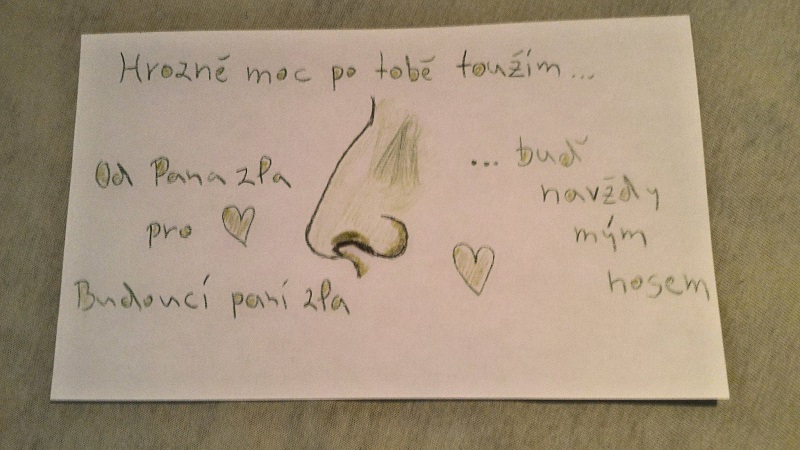 Hrozně moc po tobě toužím...
Od Pana zla
pro
Budoucí paní zla
... buď
navždy
mým
nosem